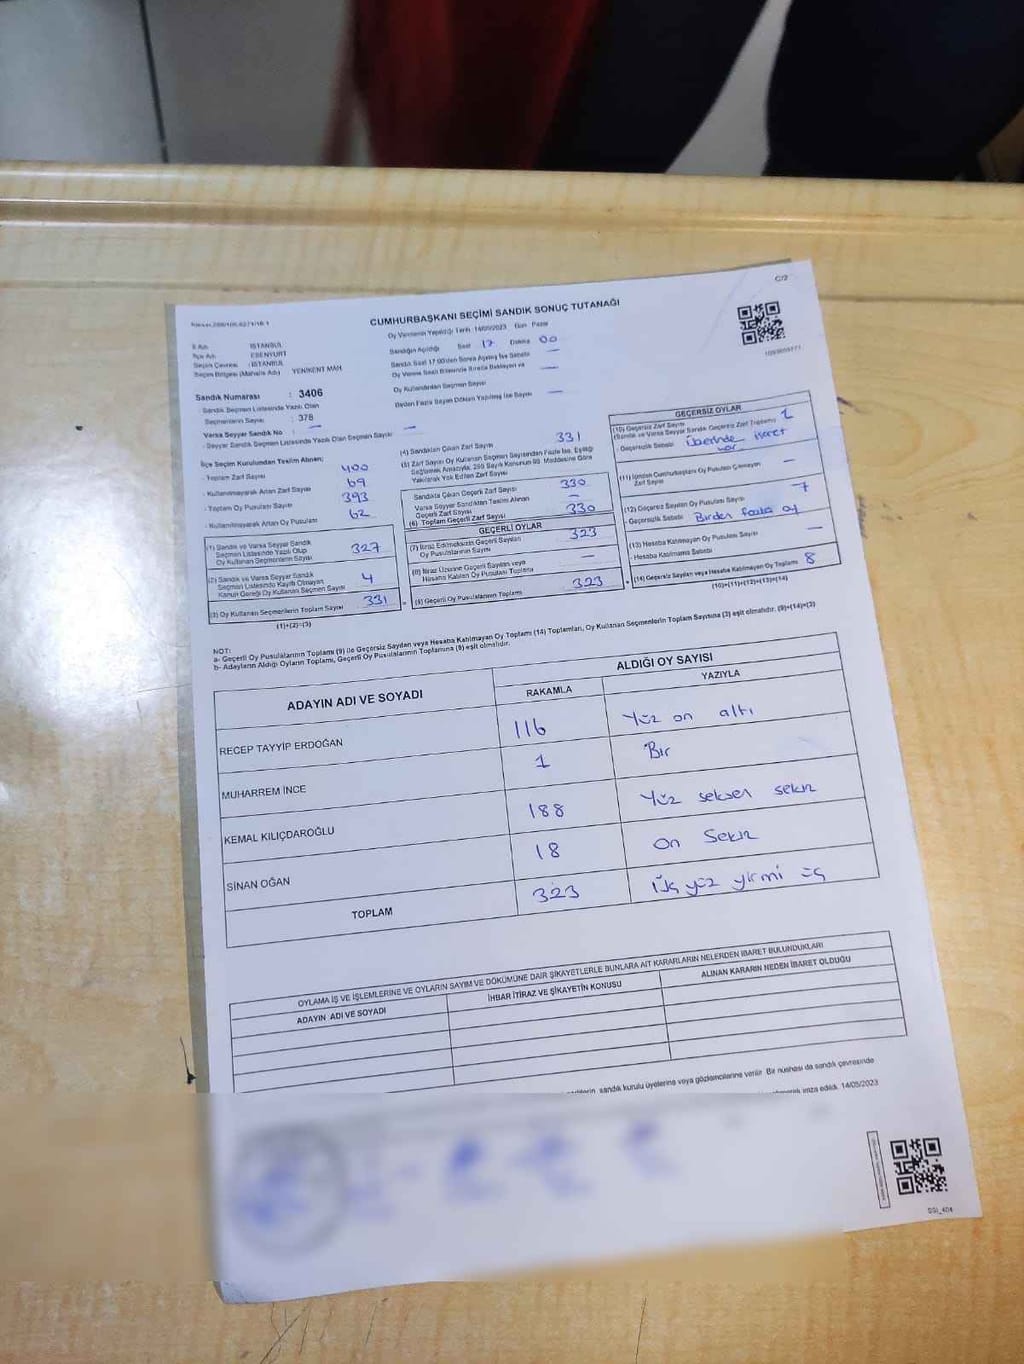 C/2
CUMHURBAŞKANI SEÇİMİ SANDIK SONUÇ TUTANAĞI
Oy Vermenin Yapıldığı Tarih 14/05/2023 Gün Pazar
İl Adı : İSTANBUL
İlçe Adı : ESENYURT
Seçim Çevresi : İSTANBUL
Seçim Bölgesi (Mahalle Adı) YENİKENT MAH.
Sandığın Açıldığı Saat 17 Dakika 00
Sandık Saat 17:00'den Sonra Açılmış İse Sebebi —
Oy Verme Saati Bitiminde Sırada Bekleyen ve
Oy Kullandırılan Seçmen Sayısı —
Birden Fazla Sayım Döküm Yapılmış İse Sayısı —
Sandık Numarası : 3406
Sandık Seçmen Listesinde Yazılı Olan
Seçmenlerin Sayısı : 378
Varsa Seyyar Sandık No : —
- Seyyar Sandık Seçmen Listesinde Yazılı Olan Seçmen Sayısı : —
İlçe Seçim Kurulundan Teslim Alınan;
- Toplam Zarf Sayısı 400
- Kullanılmayarak Artan Zarf Sayısı 69
- Toplam Oy Pusulası Sayısı 393
- Kullanılmayarak Artan Oy Pusulası 62
(1) Sandık ve Varsa Seyyar Sandık
Seçmen Listesinde Yazılı Olup
Oy Kullanan Seçmenlerin Sayısı 327
(2) Sandık ve Varsa Seyyar Sandık
Seçmen Listesinde Kayıtlı Olmayan
Kanun Gereği Oy Kullanan Seçmen Sayısı 4
(3) Oy Kullanan Seçmenlerin Toplam Sayısı 331
(1)+(2)=(3)
(4) Sandıktan Çıkan Zarf Sayısı 331
(5) Zarf Sayısı Oy Kullanan Seçmen Sayısından Fazla İse, Eşitliği
Sağlamak Amacıyla, 298 Sayılı Kanunun 98. Maddesine Göre
Yakılarak Yok Edilen Zarf Sayısı
Sandıkta Çıkan Geçerli Zarf Sayısı 330
Varsa Seyyar Sandıktan Teslim Alınan
Geçerli Zarf Sayısı —
(6) Toplam Geçerli Zarf Sayısı 330
GEÇERLİ OYLAR
(7) İtiraz Edilmeksizin Geçerli Sayılan
Oy Pusulalarının Sayısı 323
(8) İtiraz Üzerine Geçerli Sayılan veya
Hesaba Katılan Oy Pusulası Toplamı —
(9) Geçerli Oy Pusulalarının Toplamı 323
GEÇERSİZ OYLAR
(10) Geçersiz Zarf Sayısı
(Sandık ve Varsa Seyyar Sandık Geçersiz Zarf Toplamı) 1
- Geçersizlik Sebebi Üzerinde işaret
var
(11) İçinden Cumhurbaşkanı Oy Pusulası Çıkmayan
Zarf Sayısı —
(12) Geçersiz Oy Pusulası Sayısı 7
- Geçersizlik Sebebi Birden fazla oy
(13) Hesaba Katılmayan Oy Pusulası Sayısı —
- Hesaba Katılmama Sebebi
(14) Geçersiz Sayılan veya Hesaba Katılmayan Oy Toplamı 8
(10)+(11)+(12)+(13)=(14)
NOT:
a- Geçerli Oy Pusulalarının Toplamı (9) ile Geçersiz Sayılan veya Hesaba Katılmayan Oy Toplamı (14) Toplamları, Oy Kullanan Seçmenlerin Toplam Sayısına (3) eşit olmalıdır. (9)+(14)=(3)
b- Adayların Aldığı Oyların Toplamı, Geçerli Oy Pusulalarının Toplamına (9) eşit olmalıdır.
ADAYIN ADI VE SOYADI
ALDIĞI OY SAYISI
RAKAMLA YAZIYLA
RECEP TAYYİP ERDOĞAN 116 Yüz on altı
MUHARREM İNCE 1 Bir
KEMAL KILIÇDAROĞLU 188 Yüz seksen sekiz
SİNAN OĞAN 18 On Sekiz
TOPLAM 323 Üç yüz yirmi üç
OYLAMA İŞ VE İŞLEMLERİNE VE OYLARIN SAYIM VE DÖKÜMÜNE DAİR ŞİKAYETLERLE BUNLARA AİT KARARLARIN NELERDEN İBARET BULUNDUKLARI
ADAYIN ADI VE SOYADI İHBAR İTİRAZ VE ŞİKAYETİN KONUSU ALINAN KARARIN NEDEN İBARET OLDUĞU
sandık kurulu üyelerine veya gözlemcilerine verilir. Bir nüshası da sandık çevresinde
imza edildi. 14/05/2023